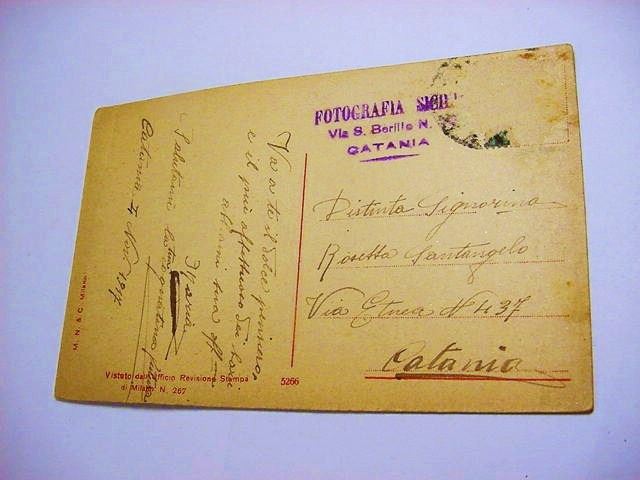 FOTOGRAFIA
Via S. Berillo N.
CATANIA
Distinta Signorina
Rosetta Santangelo
Via Etnea N 437
Catania
Va a te il dolce pensiero,
e il più affettuoso dei baci
Maria
Salutami la
Catania
M. N. & C. Milano
Visto dall'Ufficio Revisione Stampa
di Milano N. 267
5266